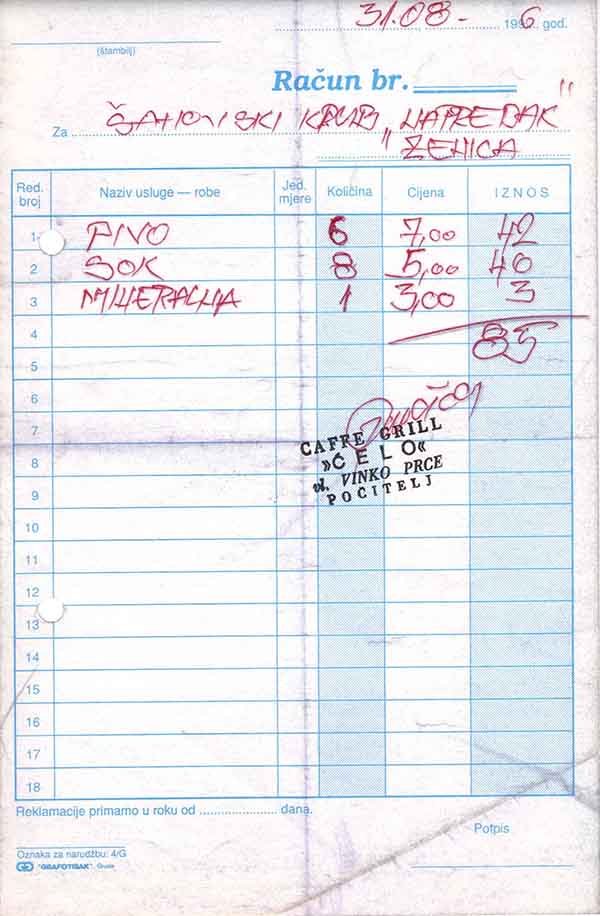 31.08- 1996. god.
(štambilj)
Račun br.
Za ŠAHOVSKI KLUB "NAPREDAK"
ZENICA
Red. broj Naziv usluge — robe Jed. mjere Količina Cijena IZNOS
1 PIVO 6 7,00 42
2 SOK 8 5,00 40
3 MINERALNA 1 3,00 3
4 85
5
6
7
CAFFE GRILL
8 »ĆELO«
vl. VINKO PRCE
9 POČITELJ
10
11
12
13
14
15
16
17
18
Reklamacije primamo u roku od dana.
Potpis
Oznaka za narudžbu: 4/G
"GRAFOTISAK", Grude